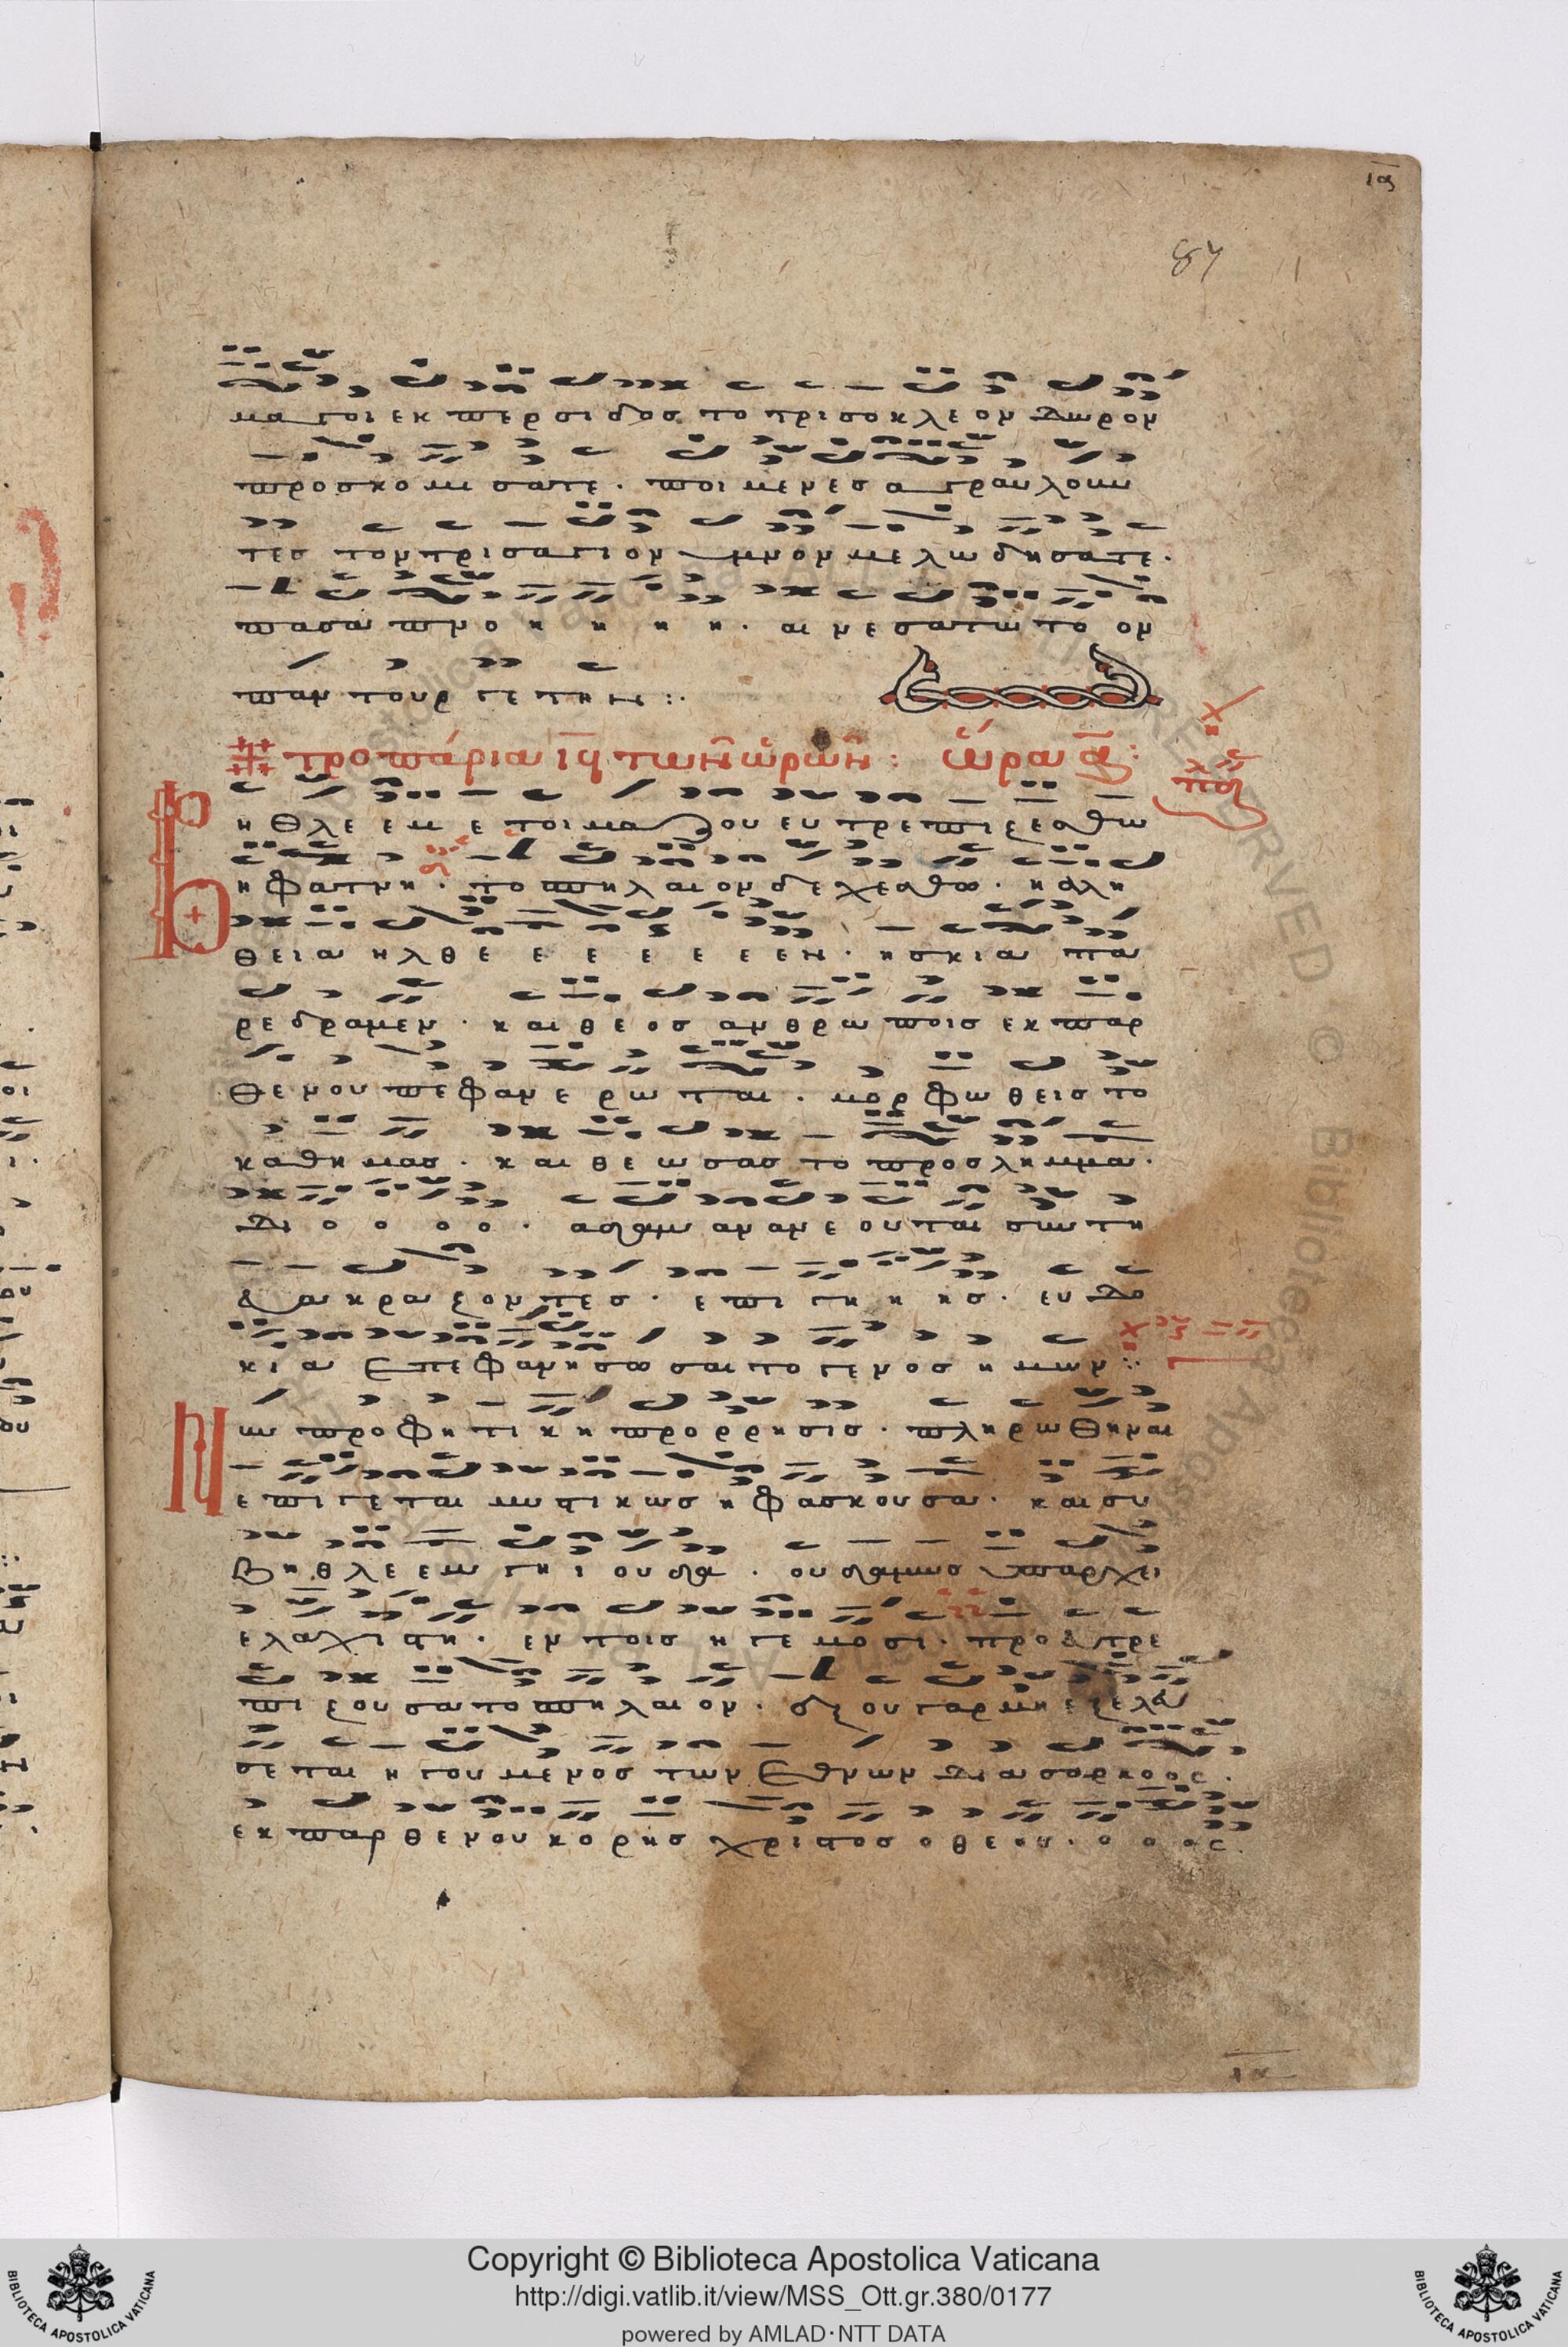 ιϛ
87
μα γοι εκ περ σι δος το τρι σο κλε ον δω ρον
προσ κο μι σα τε . ποι με νες α γραυ λουν
τες τον τρι σα γι ον υμνον με λω δη σα τε .
πασα πνο η η η η . αι νε σα τω το ον
παν τουρ γε την :.
τροπάρια ιβ τῶν ὡρῶν : ὥρα α :
Βη θλε εμ ε τοι μα ζου ευ τρε πι ζε σθω
η φατνη . το σπη λαι ον δε χε σθω . η αλη
θεια ηλθε ε ε ε ε ε εν . η σκια πα
ρε δρα μεν . και θε ος αν θρω ποις εκ παρ
θε νου πε φανε ρω ται . μορ φω θεις το
καθη μας . και θε ω σας το προσ λημμα .
δι ο ο ο ο . αδαμ ανανε ουται συν τη
ευα κρα ζον τες . επι γη η ης . ευ δο
κι α επεφανη σω σαι το γε νος η μων :
Νυν προ φη τι κη προρρησις . πληρωθηναι
ε πι γε ται μυ στι κως η φα σκου σα . και συ
βη θλε εμ γη ι ου δα . ου δαμως υπαρχει
ελαχι στη . εν τοις η γε μο σι . προευ τρε
πι ζου σα το σπη λαι ον . εκ σου γαρ μοι εξελευ
σε ται η γου με νος των εθνων δια σαρκοος .
εκ παρ θε νου κο ρης χριστος ο θεος . ο ο ος .
ιϛ
Copyright © Biblioteca Apostolica Vaticana
http://digi.vatlib.it/view/MSS_Ott.gr.380/0177
powered by AMLAD·NTT DATA
BIBLIOTECA APOSTOLICA VATICANA
BIBLIOTECA APOSTOLICA VATICANA